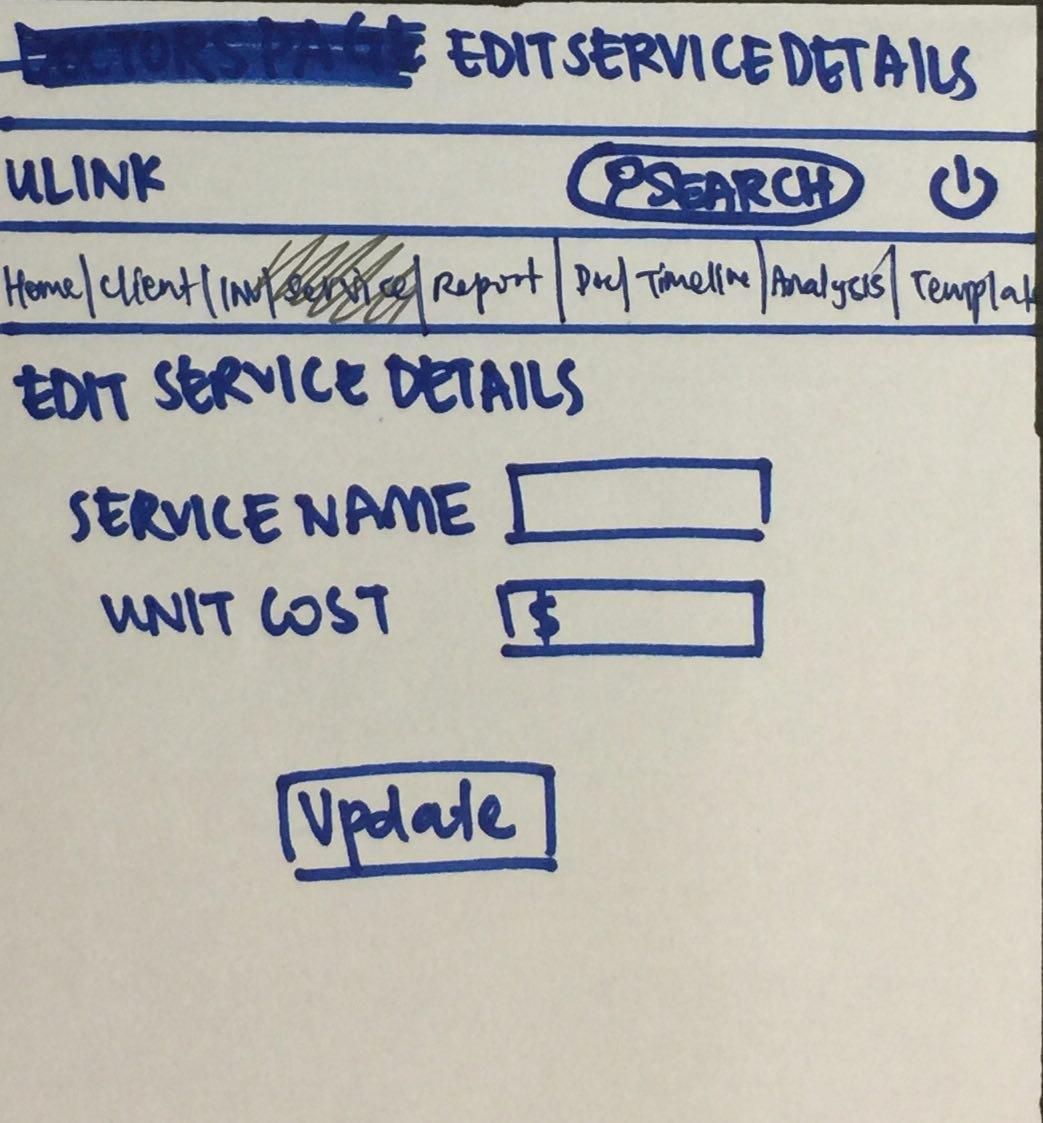 DOCTORS PAGE EDIT SERVICE DETAILS
ULINK SEARCH
Home | Client | INV | Service | Report | Doc | Timeline | Analysis | Templat
EDIT SERVICE DETAILS
SERVICE NAME
UNIT COST $
Update